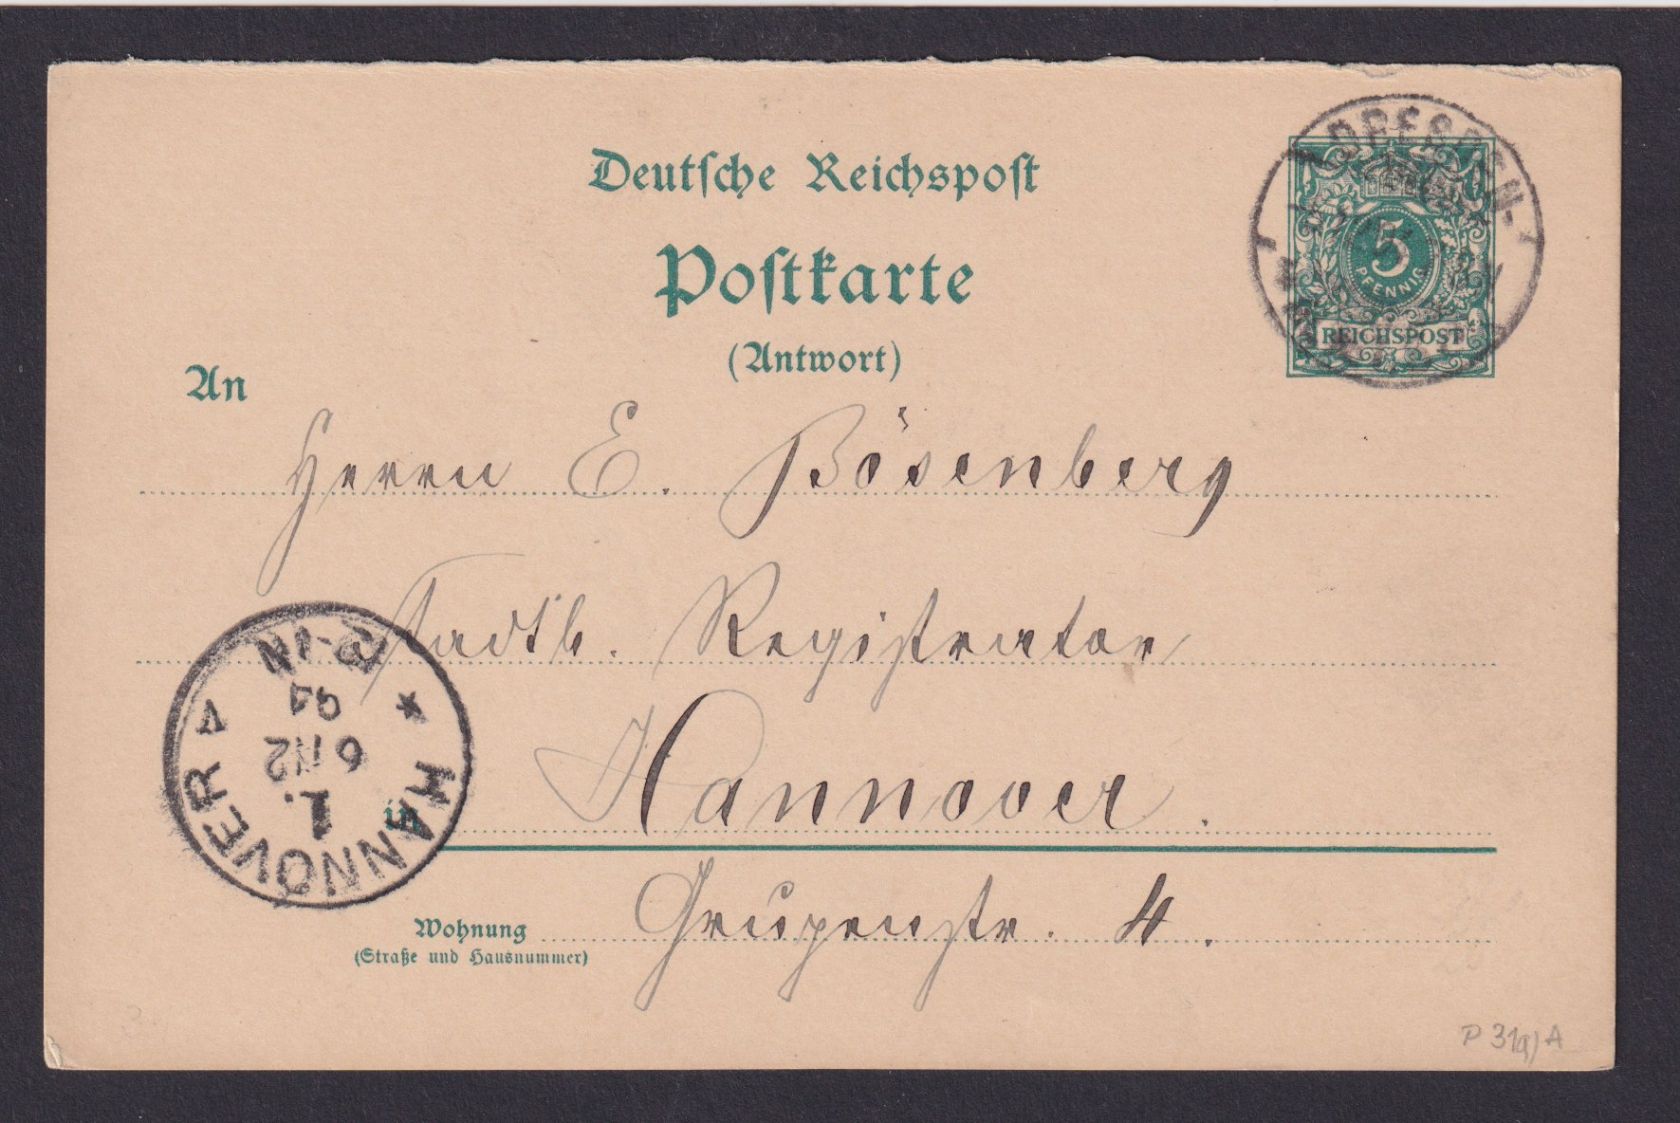 Deutsche Reichspost
Postkarte
(Antwort)
DRESDEN-
5
PFENNIG
REICHSPOST
An
Herrn E. Bösenberg
Stadtb. Registrator
in Hannover.
Wohnung Grupenstr. 4.
(Straße und Hausnummer)
HANNOVER
1.
6/12
94
8-9N
P 31a) A